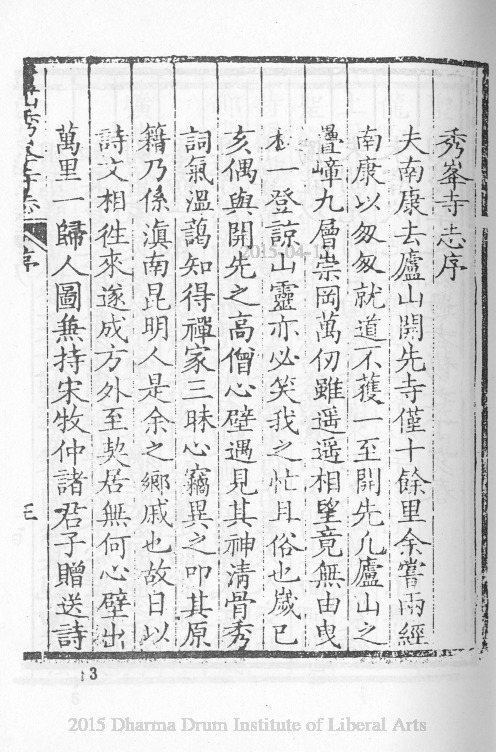 秀峯寺志序
夫南康去廬山開先寺僅十餘里余嘗兩經
南康以匆匆就道不獲一至開先凡廬山之
疊嶂九層崇岡萬仞雖遥遥相望竟無由曳
杖一登諒山靈亦必笑我之忙且俗也歲己
亥偶與開先之高僧心壁遇見其神清骨秀
詞氣溫藹知得禪家三昧心竊異之叩其原
籍乃係滇南昆明人是余之鄉戚也故日以
詩文相徃來遂成方外至契居無何心壁出
萬里一歸人圖兼持宋牧仲諸君子贈送詩
秀峯寺志
序
三
13
2015-04-1
2015 Dharma Drum Institute of Liberal Arts